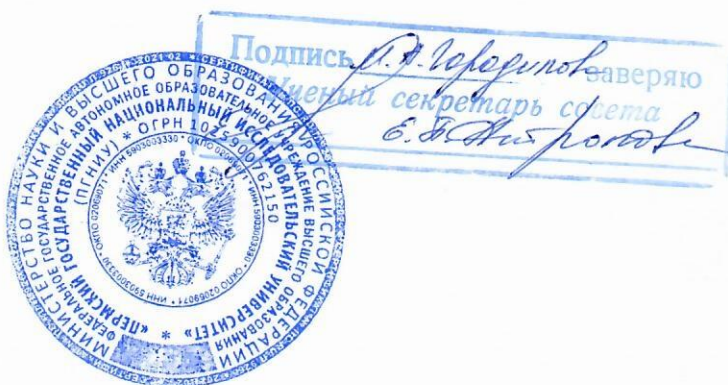 Подпись П.А. Городилов заверяю
Ученый секретарь совета
Е.П. Антропова
МИНИСТЕРСТВО НАУКИ И ВЫСШЕГО ОБРАЗОВАНИЯ РОССИЙСКОЙ ФЕДЕРАЦИИ
ФЕДЕРАЛЬНОЕ ГОСУДАРСТВЕННОЕ АВТОНОМНОЕ ОБРАЗОВАТЕЛЬНОЕ УЧРЕЖДЕНИЕ ВЫСШЕГО ОБРАЗОВАНИЯ
«ПЕРМСКИЙ ГОСУДАРСТВЕННЫЙ НАЦИОНАЛЬНЫЙ ИССЛЕДОВАТЕЛЬСКИЙ УНИВЕРСИТЕТ» *
(ПГНИУ) * ОГРН 1025900762150
* ОКПО 02069071 * ИНН 5903003330 * ОКПО 02069071 * ИНН 5903003330